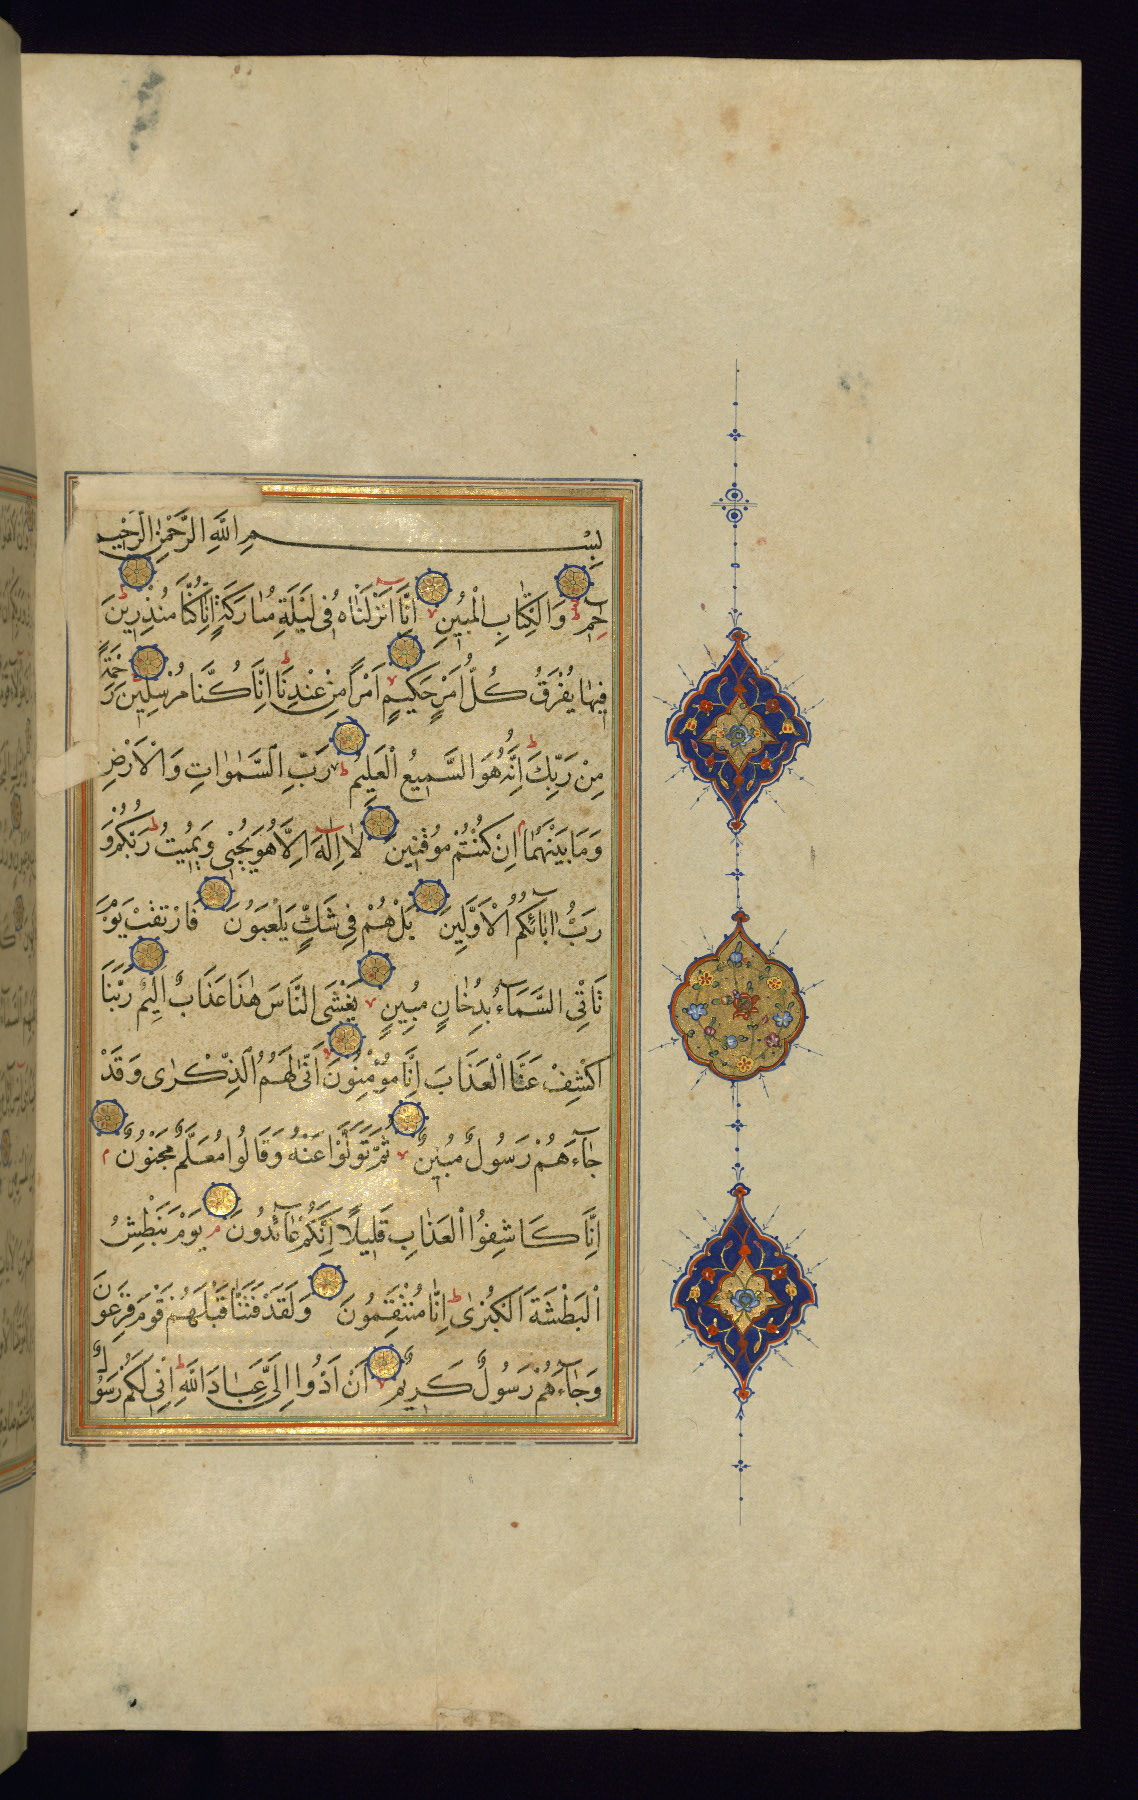 بِسْمِ اللَّهِ الرَّحْمٰنِ الرَّحِيمِ
حٰمٓ وَالْكِتَابِ الْمُبِينِ اِنَّٓا اَنْزَلْنَاهُ فِى لَيْلَةٍ مُبَارَكَةٍ اِنَّا كُنَّا مُنْذِرِينَ
فِيهَا يُفْرَقُ كُلُّ اَمْرٍ حَكِيمٍ اَمْرًا مِنْ عِنْدِنَا اِنَّا كُنَّا مُرْسِلِينَ رَحْمَةً
مِنْ رَبِّكَ اِنَّهُ هُوَ السَّمِيعُ الْعَلِيمُ رَبِّ السَّمٰوَاتِ وَالْاَرْضِ
وَمَا بَيْنَهُمَا اِنْ كُنْتُمْ مُوقِنِينَ لَا اِلٰهَ اِلَّا هُوَ يُحْيِى وَيُمِيتُ رَبُّكُمْ وَ
رَبُّ اٰبَآئِكُمُ الْاَوَّلِينَ بَلْ هُمْ فِى شَكٍّ يَلْعَبُونَ فَارْتَقِبْ يَوْمَ
تَاْتِى السَّمَآءُ بِدُخَانٍ مُبِينٍ يَغْشَى النَّاسَ هٰذَا عَذَابٌ اَلِيمٌ رَبَّنَا
اكْشِفْ عَنَّا الْعَذَابَ اِنَّا مُؤْمِنُونَ اَنّٰى لَهُمُ الذِّكْرٰى وَقَدْ
جَآءَهُمْ رَسُولٌ مُبِينٌ ثُمَّ تَوَلَّوْا عَنْهُ وَقَالُوا مُعَلَّمٌ مَجْنُونٌ
اِنَّا كَاشِفُوا الْعَذَابِ قَلِيلًا اِنَّكُمْ عَآئِدُونَ يَوْمَ نَبْطِشُ
الْبَطْشَةَ الْكُبْرٰى اِنَّا مُنْتَقِمُونَ وَلَقَدْ فَتَنَّا قَبْلَهُمْ قَوْمَ فِرْعَوْنَ
وَجَآءَهُمْ رَسُولٌ كَرِيمٌ اَنْ اَدُّوا اِلَىَّ عِبَادَ اللَّهِ اِنِّى لَكُمْ رَسُولٌ